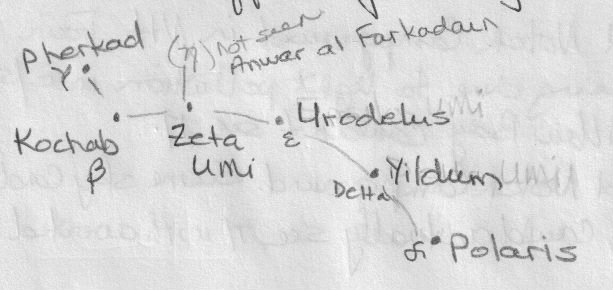 Pherkad
γ
(η) not seen
Anwar al Farkadain
Kochab
β
Zeta
UMi
Urodelus
ε
Yildun
Delta
α Polaris